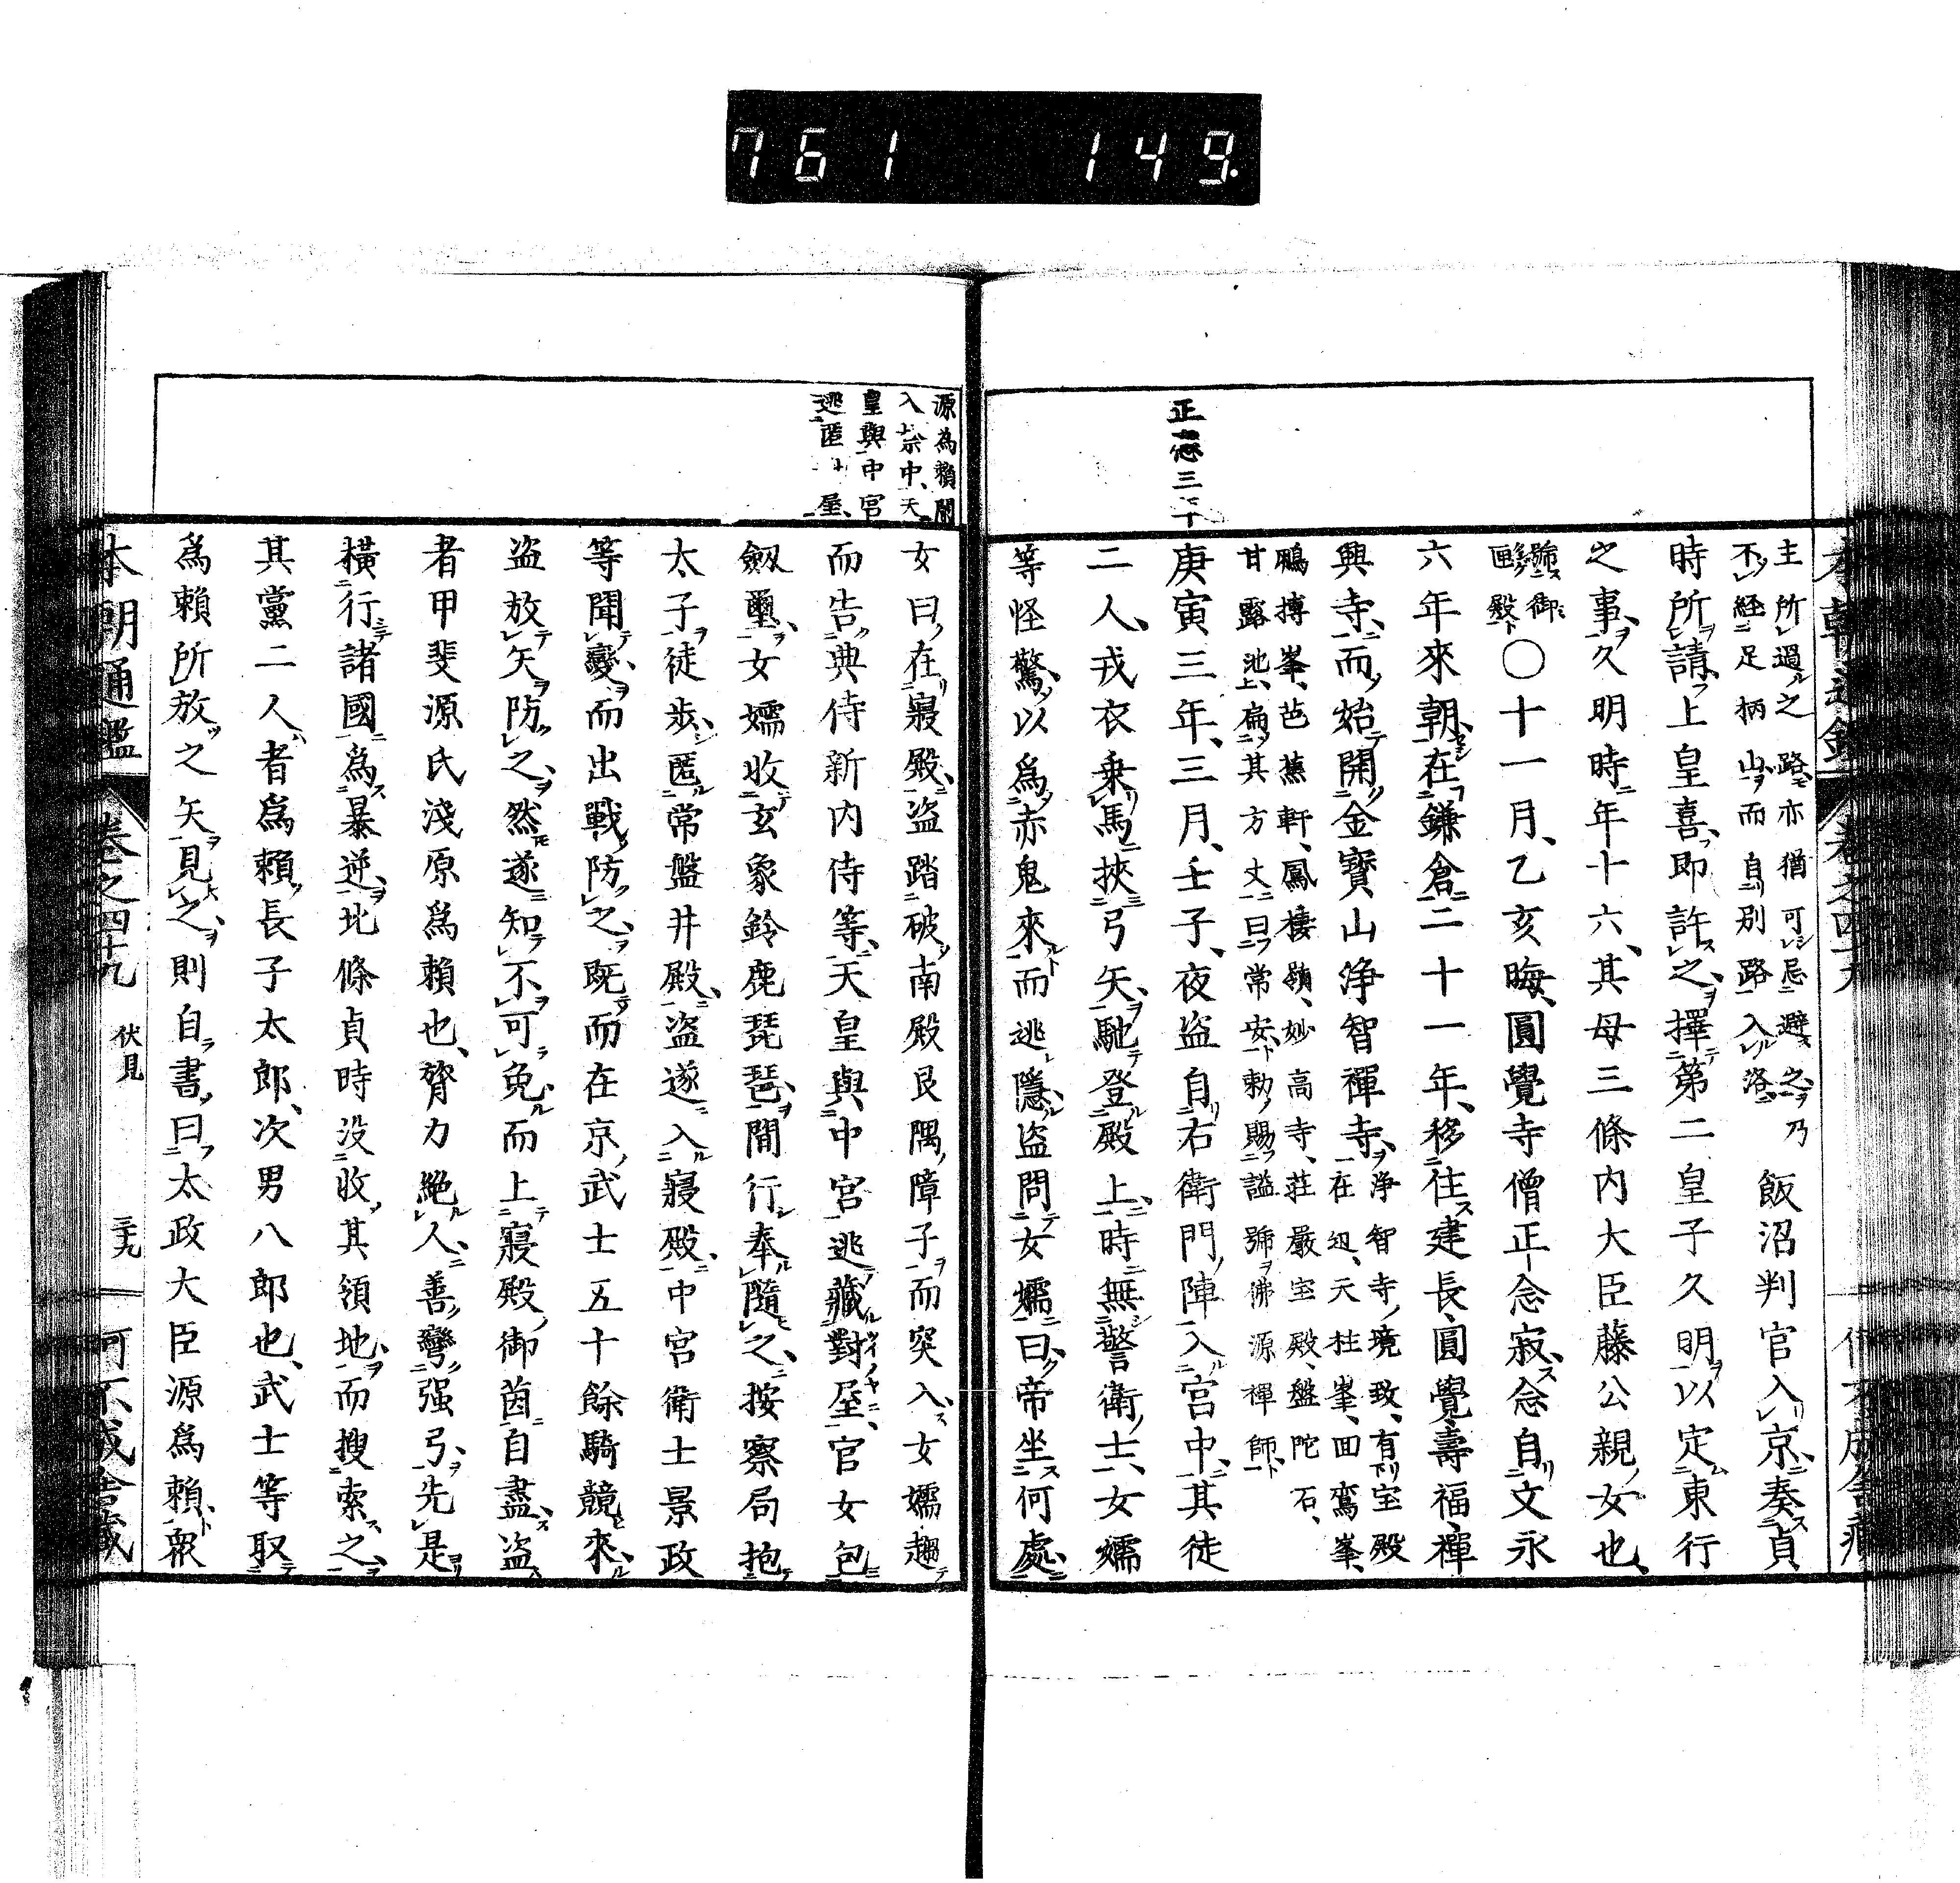 761 149.
正應三年
主所過之路亦猶可忌避之乃
不経足柄山而自別路入洛
飯沼判官入京奏貞
時所請上皇喜即許之擇第二皇子久明以定東行
之事久明時年十六其母三條内大臣藤公親女也
號御
匣殿
〇十一月乙亥晦圓覺寺僧正念寂念自文永
六年來朝在鎌倉二十一年移住建長圓覺壽福禪
興寺而始開金寶山淨智禪寺
淨智寺境致有宝殿
在辺天柱峯回鸞峯
鵬搏峯芭蕉軒鳳棲嶺妙高寺莊嚴宝殿盤陀石
甘露池上扁其方丈曰常安勅賜謚號佛源禪師
庚寅三年三月壬子夜盗自右衛門陣入宮中其徒
二人戎衣乗馬挾弓矢馳登殿上時無警衛士女嬬
等怪驚以爲赤鬼來而逃隱盗問女嬬曰帝坐何處
源為頼闌
入禁中天
皇與中宮
逃匿小屋
女曰在寢殿盗踏破南殿艮隅障子而突入女嬬趨
而告典侍新内侍等天皇與中宮逃藏對屋官女包
劔璽女嬬收玄象鈴鹿琵琶間行奉隨之按察局抱
太子徒歩匿常盤井殿盗遂入寢殿中宮衛士景政
等聞變而出戰防之既而在京武士五十餘騎競來
盗放矢防之然遂知不可免而上寢殿御茵自盡盗
者甲斐源氏淺原爲頼也膂力絶人善彎强弓先是
横行諸國爲暴逆北條貞時没收其領地而搜索之
其黨二人者爲頼長子太郎次男八郎也武士等取
爲頼所放之矢見之則自書曰太政大臣源爲頼衆
本朝通鑑 卷之四十九 伏見 三十九 何不成舎蔵